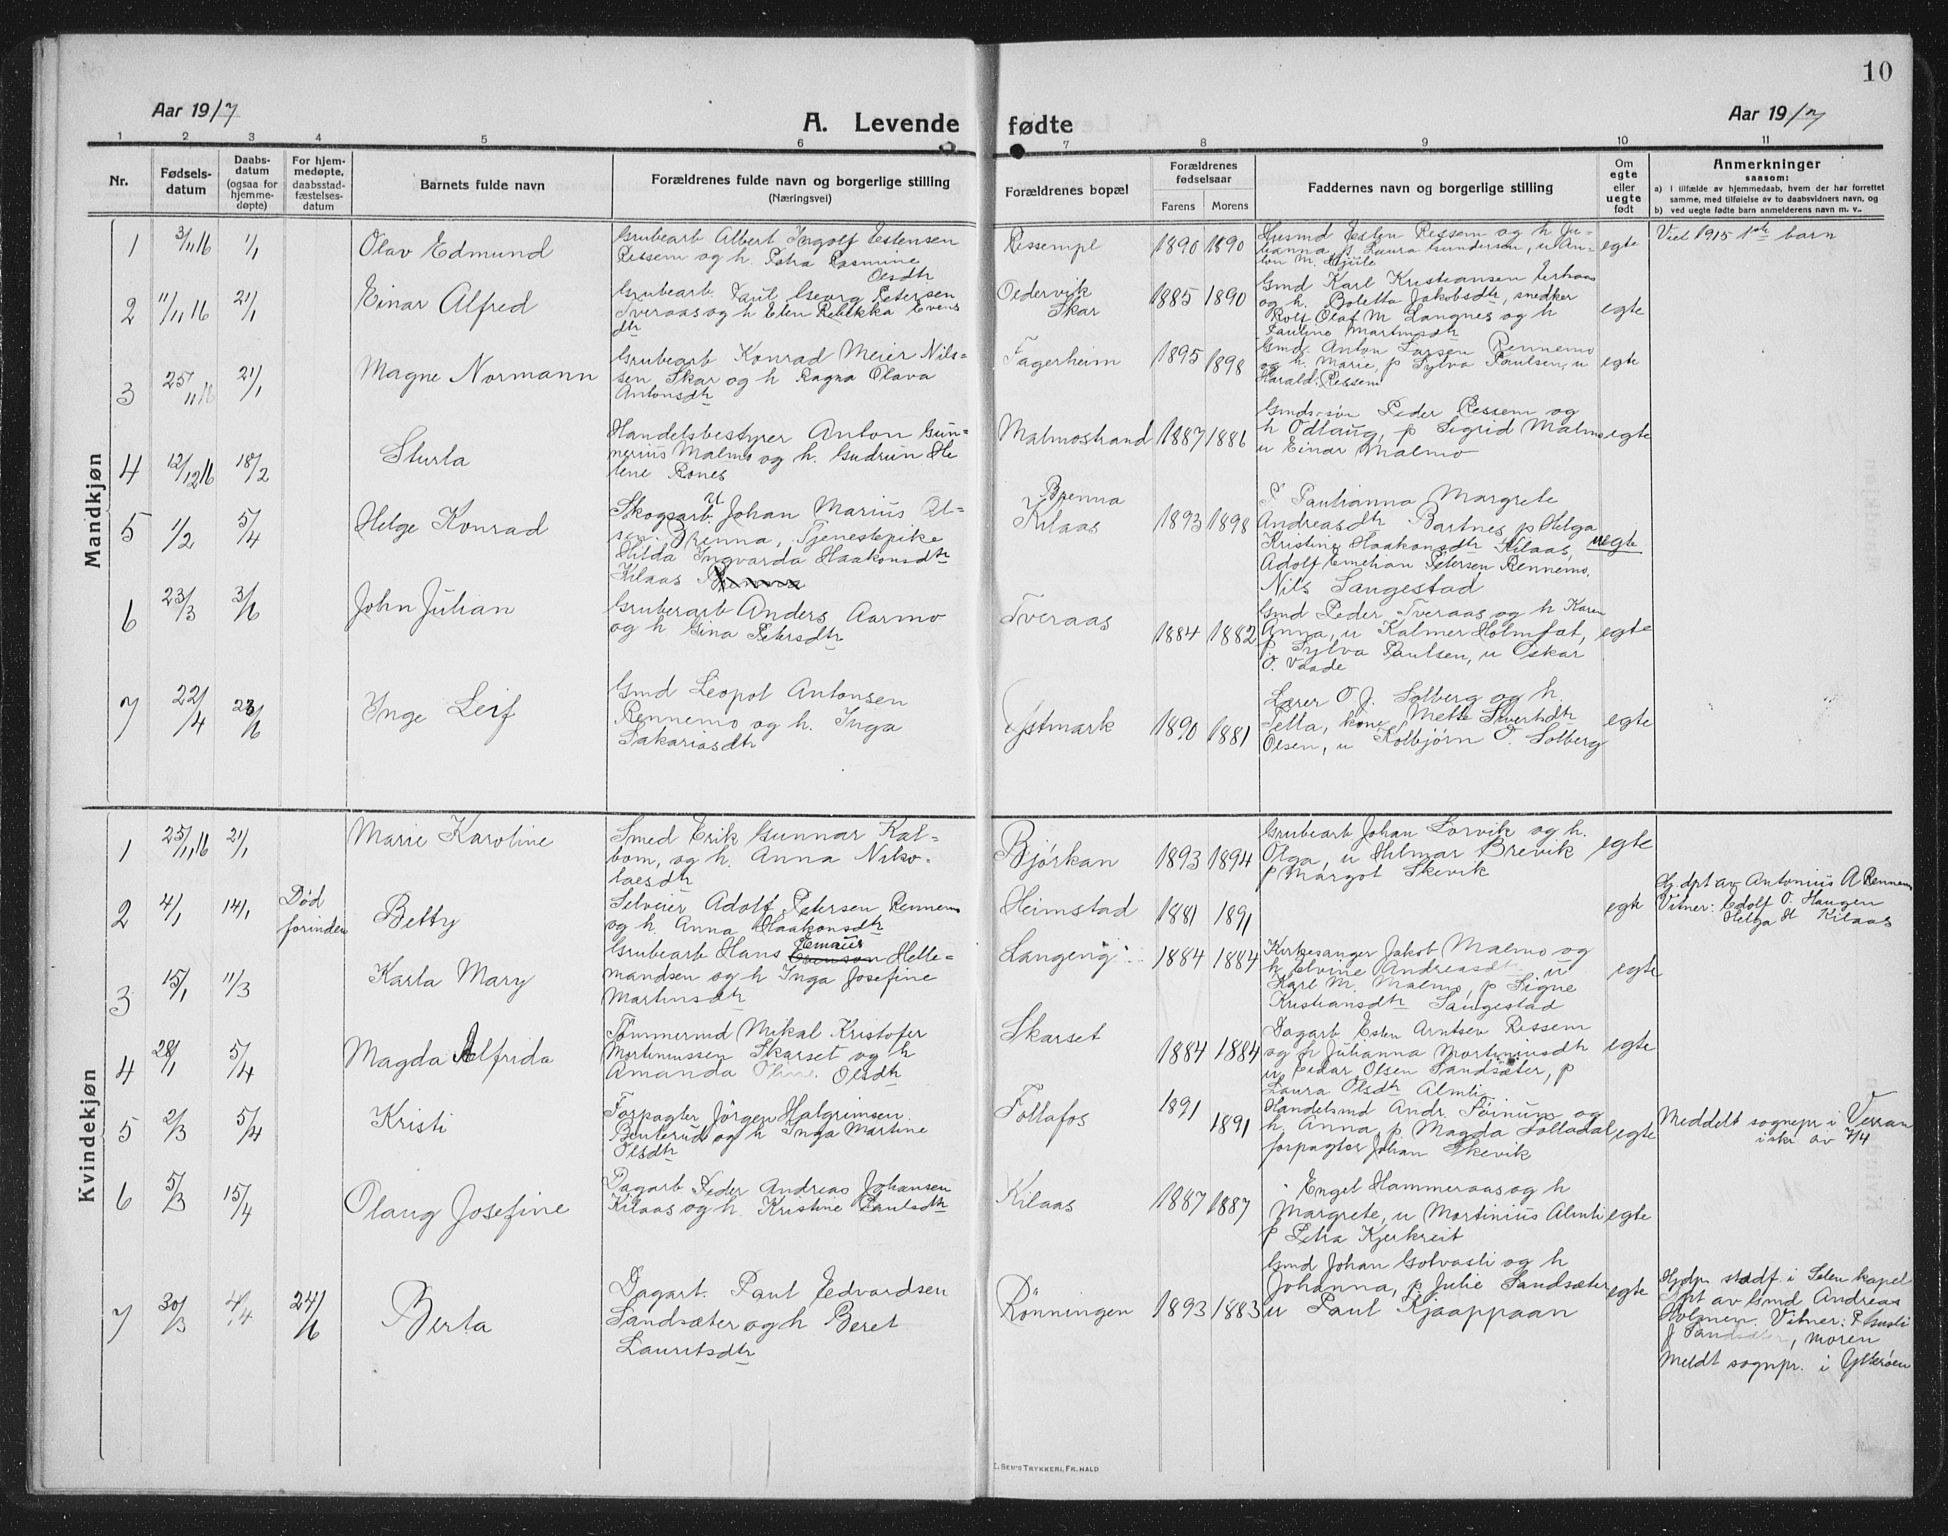 10
Aar 1917
A. Levende fødte
Aar 1917
1 2 3 4 5 6 7 8 9 10 11
Nr.
Fødsels-
datum
Daabs-
datum
(ogsaa for
hjemme-
døpte)
For hjem-
medøpte,
daabsstad-
fæstelses-
datum
Barnets fulde navn
Forældrenes fulde navn og borgerlige stilling
(Næringsvei)
Forældrenes bopæl
Forældrenes
fødselsaar
Farens Morens
Faddernes navn og borgerlige stilling
Om
egte
eller
uegte
født
Anmerkninger
saasom:
a) I tilfælde av hjemmedaab, hvem der har forrettet
samme, med tilføielse av to daabsvidners navn, og
b) ved uegte fødte barn anmelderens navn m. v..
Mandkjøn
1 3/11 16 1/1 Olav Edmund
Grubearb Albert Ingolf Estensen
Ressem og h. Petra Rasmine
Olsdtr
Ressempl 1890 1890
Husmd Esten Ressem og h Ju-
lianna, p Laura Gundersen, u An-
ton M. Hjule
egte
Viet 1915 1ste barn
2 11/11 16 21/1 Einar Alfred
Grubearb. Paul Georg Petersen
Tveraas og h Elen Rebekka Evens
dtr
Oldervik
Skar
1885 1890
Gmd Karl Kristiansen
og h. Boletta Jakobsdtr, snedker
Rolf Olaf M Langnes og h
Pauline Martinsdtr
egte
3 25/11 16 21/1 Magne Normann
Grubearb Konrad Meier Nils-
sen Skar og h Ragna Olava
Antonsdtr
Fagerheim 1895 1898
Gmd. Anton Larsen Rennemo
og h. Marie, p Sylva Paulsen, u
Harald Ressem
egte
4 12/12 16 18/2 Sturla
Handelsbestyrer Anton Gun-
nerius Malmo og h. Gudrun He
lene Rones
Malmostrand 1887 1886
Gmds.søn Peder Ressem og
h Odlaug, p Sigrid Malmo
u Einar Malmo
egte
5 1/2 5/4 Helge Konrad
Skogsarb. U Johan Marius Ol-
sen Brenna, Tjenestepike
Hilda Ingvarda Haakonsdtr
Kilaas
Brenna
Kilaas
1893 1898
P Paulianna Margrete
Andreasdtr Bartnes p Helga
Kristine Haakonsdtr Kilaas,
Adolf Petersen Rennemo,
Nils Sangestad
uegte
6 23/3 3/6 John Julian
Gruberarb Anders Aarmo
og h Gina Petersdtr
Tveraas 1884 1882
Gmd Peder Tveraas og h Karen
Anna, u Kalmer Holmfat,
p Sylva Paulsen, u Oskar
O. Vaade
egte
7 22/4 23/6 Inge Leif
Gmd Leopol Antonsen
Rennemo og h. Inga
Sakariasdtr
Østmark 1890 1881
Lærer O. J. Solberg og h
Jetta, kone Mette Sivertsdtr
Olsen, u Kolbjørn O. Solberg
egte
Kvindekjøn
1 25/11 16 21/1 Marie Karoline
Smed Erik Gunnar Kal-
bom, og h. Anna Niko-
laesdtr
Bjørkan 1893 1894
Grubearb Johan Lorvik og h.
Olga, u Hilmar Brevik
p Margot Skevik
egte
2 4/1 14/1 Død
forinden
Betty
Selveier Adolf Petersen Rennemo
og h. Anna Haakonsdtr
Heimstad 1881 1891
egte
Hj.dpt av Antonius A Rennemo
Vitner: Edolf O. Haugen
Helga H Kilaas
3 15/1 11/3 Karla Mary
Grubearb Hans Emaus Helle-
mandsen og h Inga Josefine
Martinsdtr
Langeng 1884 1884
Kirkesanger Jakob Malmo og
h Elvine Andreasdtr u
Karl M. Malmo, p Signe
Kristiansdtr Sangestad
egte
4 28/1 5/4 Magda Alfrida
Tømmermd Mikal Kristofer
Mortinussen Skarset og h
Amanda Oline Olsdtr
Skarset 1884 1884
Dagarb Esten Arntsen Ressem
og h Julianna Mortiniusdtr
u Eidar Olsen Sandsæter, p
Laura Olsdtr Almli
egte
5 2/3 5/4 Kristi
Forpagter Jörgen Halgrimsen
Benterud og h Inga Martine
Olsdtr
Follafos 1891 1891
Handelsmd Andr. Föinum og
h. Anna p Magda Folladal
forpagter Johan Skevik
egte
Meddelt sognepr i Verran
i skr av 7/4
6 5/3 15/4 Olaug Josefine
Dagarb Peder Andreas Johansen
Kilaas og h. Kristine Paulsdtr
Kilaas 1887 1887
Engel Hammeraas og h
Margrete, u Mortinius Almli
p Petra Kjerkreit
egte
7 30/3 4/4 24/6 Berta
Dagarb. Paul Edvardsen
Sandsæter og h Beret
Lauritsdtr
Rönningen 1893 1883
Gmd Johan Golvasli og h
Johanna, p Julie Sandsæter
u Paul Kjaappaan
egte
Hjdp stadf. i Selen kapel
Dpt av Gmd Andreas
Holmen. Vitner:
J Sandsæter, moren
Meldt sognepr. i Ytterøen
E. SEM'S TRYKKERI, FR. HALD